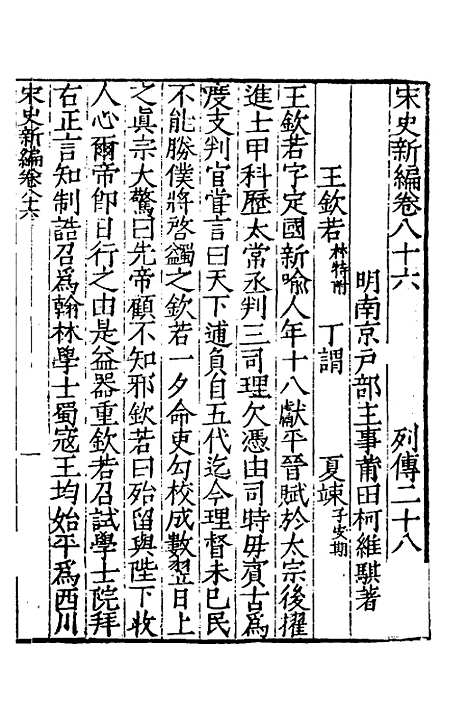 宋史新編卷八十六 列傳二十八
明南京戶部主事莆田柯維騏著
王欽若林特附 丁謂 夏竦子安期
王欽若字定國新喻人年十八獻平晉賦於太宗後擢
進士甲科歷太常丞判三司理欠憑由司時毋賓古爲
度支判官嘗言曰天下逋負自五代迄今理督未已民
不能勝僕將啓蠲之欽若一夕命吏勾校成數翌日上
之眞宗大驚曰先帝顧不知邪欽若曰殆留與陛下收
人心爾帝卽日行之由是益器重欽若召試學士院拜
右正言知制誥召爲翰林學士蜀寇王均始平爲西川
宋史新編卷八十六 一